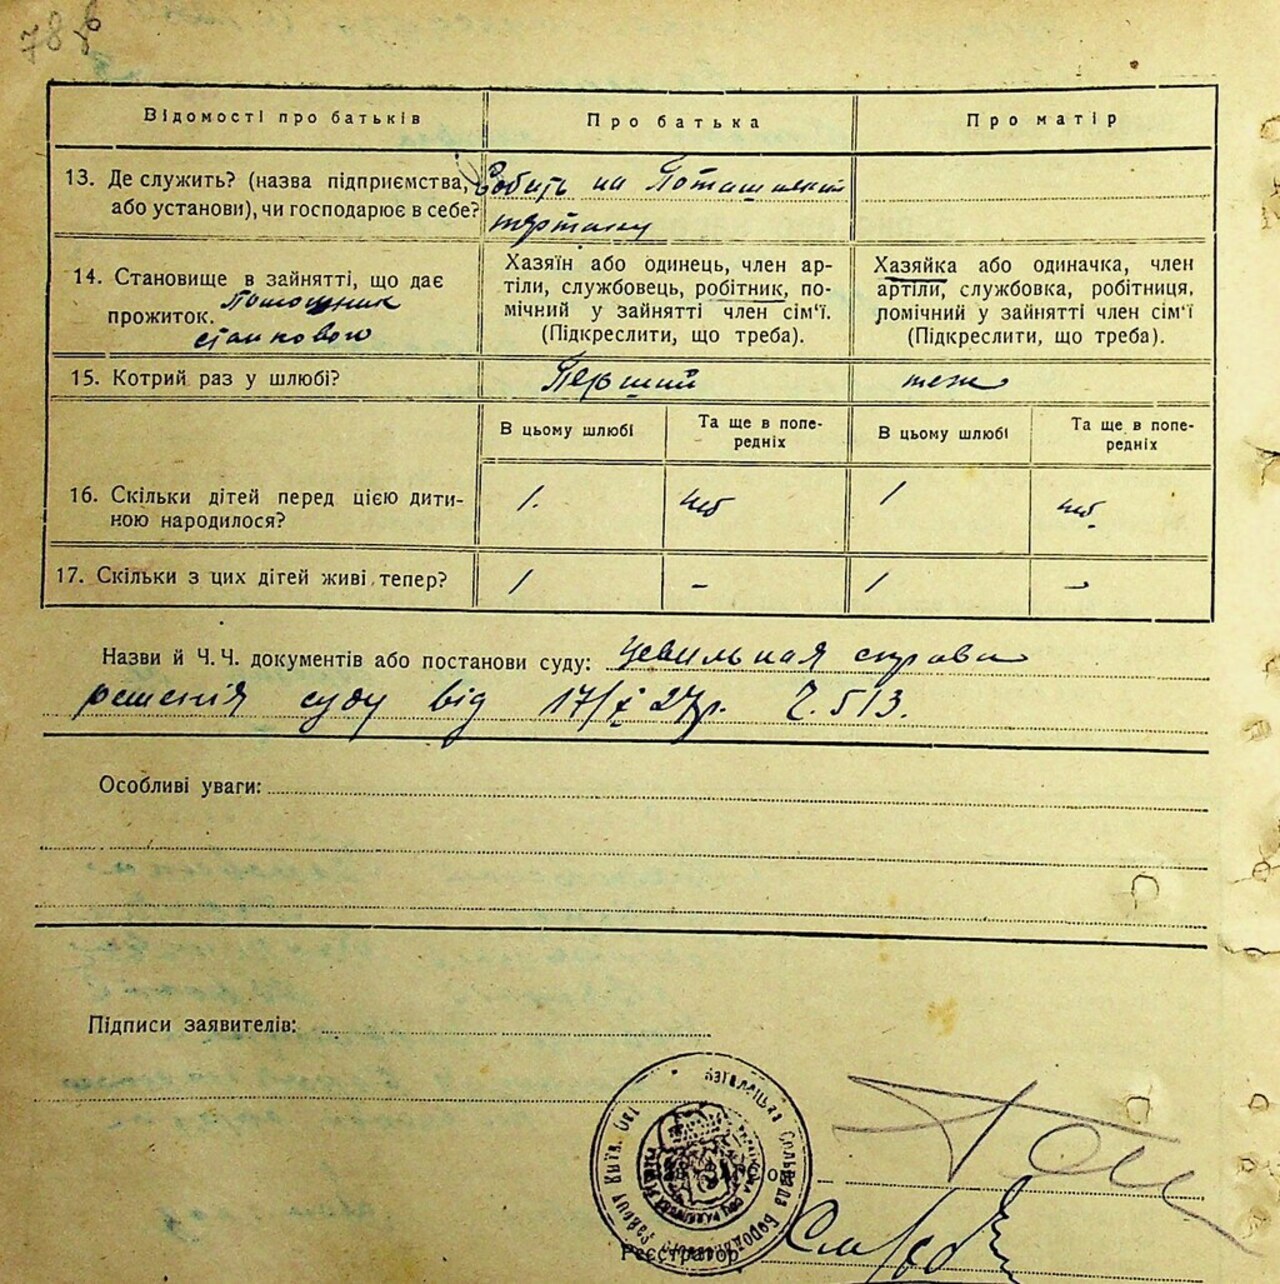 78
Відомості про батьків
Про батька
Про матір
13. Де служить? (назва підприємства,
або установи), чи господарює в себе?
Робить на
14. Становище в зайнятті, що дає
прожиток.
Помошник
станкового
Хазяїн або одинець, член ар-
тіли, службовець, робітник, по-
мічний у зайнятті член сім'ї.
(Підкреслити, що треба).
Хазяйка або одиначка, член
артіли, службовка, робітниця,
помічний у зайнятті член сім'ї
(Підкреслити, що треба).
15. Котрий раз у шлюбі?
Перший
теж
В цьому шлюбі
Та ще в попе-
редніх
В цьому шлюбі
Та ще в попе-
редніх
16. Скільки дітей перед цією дити-
ною народилося?
1.
1
17. Скільки з цих дітей живі тепер?
1
-
1
-
Назви й Ч.Ч. документів або постанови суду: справа
решенія суду від 17/X 27р. Ч. 513.
Особливі уваги:
Підписи заявителів:
Реєстратор